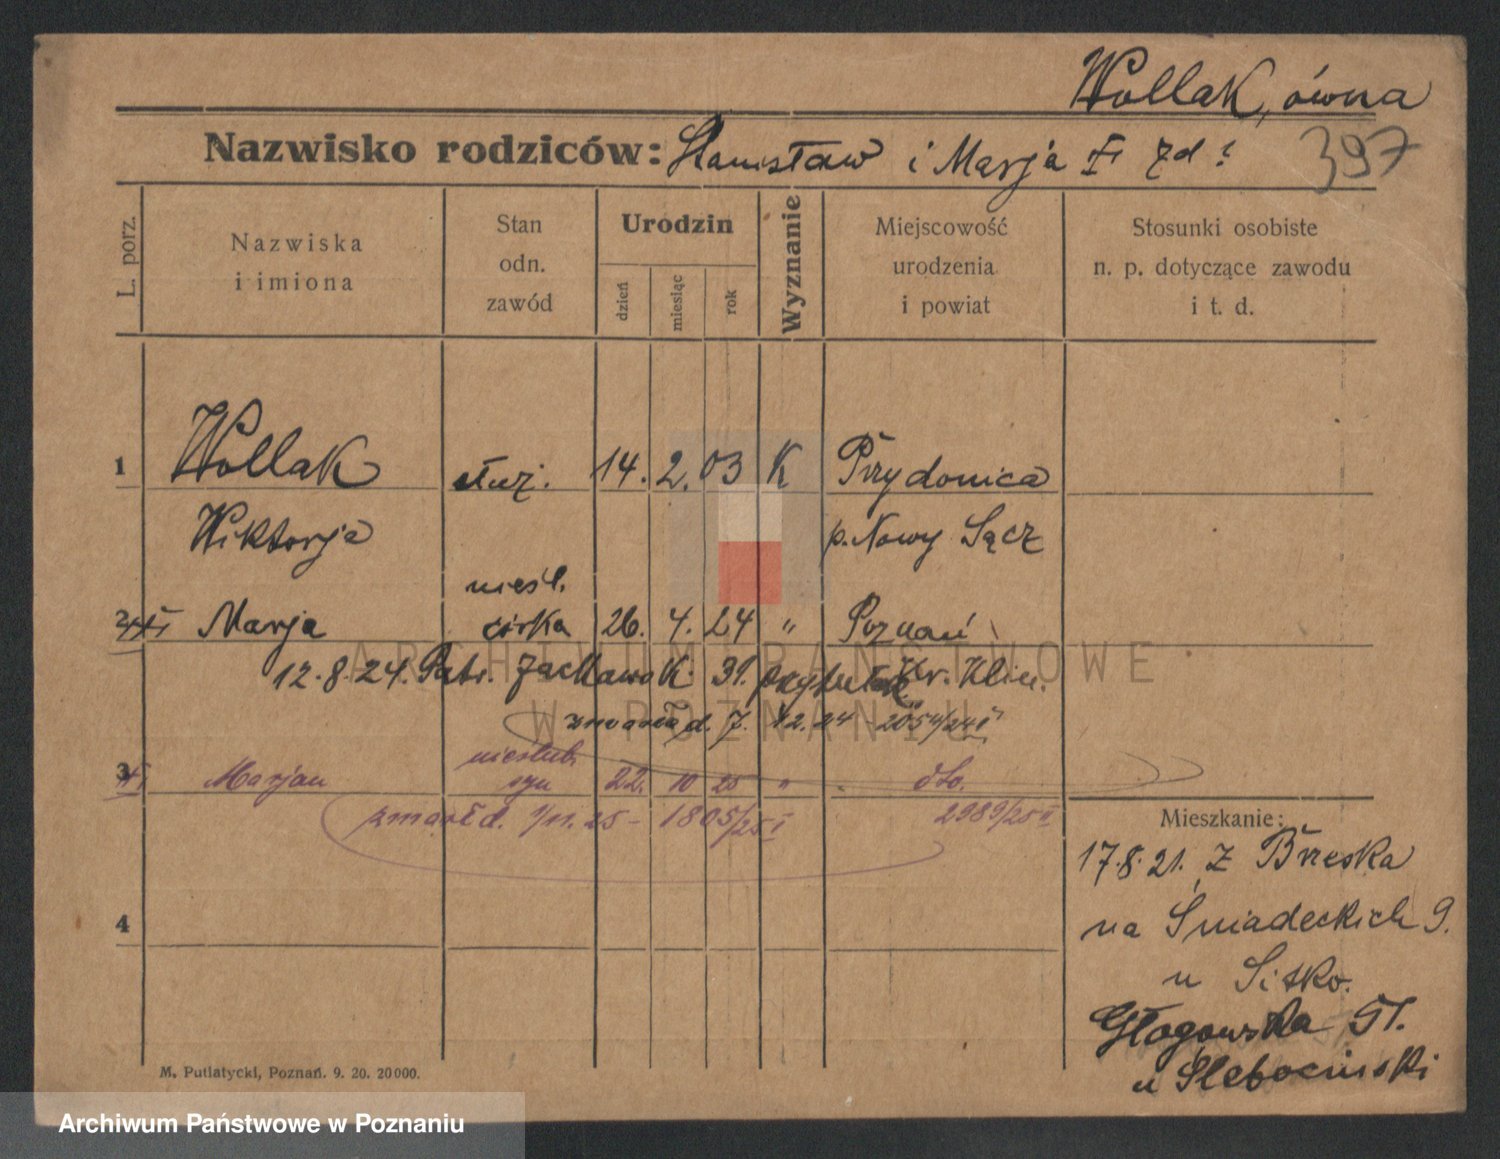 Wollak, ówna
Nazwisko rodziców: Stanisław i Marja
397
L. porz.
Nazwiska i imiona
Stan odn. zawód
Urodzin
dzień
miesiąc
rok
Wyznanie
Miejscowość urodzenia i powiat
Stosunki osobiste n. p. dotyczące zawodu i t. d.
1 Wollak służ. 14. 2. 03 K Przydonica
Wiktorja p. Nowy Sącz
nieśl.
2 Marja córka 26. 4. 24 " Poznań
12.8.24. Patr. Jackowsk. 31.
zmarła d. 7. 12. 24 2054/24 I
nieślub.
3 Marjan syn 22. 10 25 " dto.
zmarł d. 1/11. 25 - 1805/25 I 2989/25 II
Mieszkanie:
17.8.21. z Brzeska
na Śniadeckich 9.
u Sitko.
4
Głogowska 51.
u Śleboinski
M. Putiatycki, Poznań. 9. 20. 20000.
ARCHIWUM PAŃSTWOWE
W POZNANIU
Archiwum Państwowe w Poznaniu